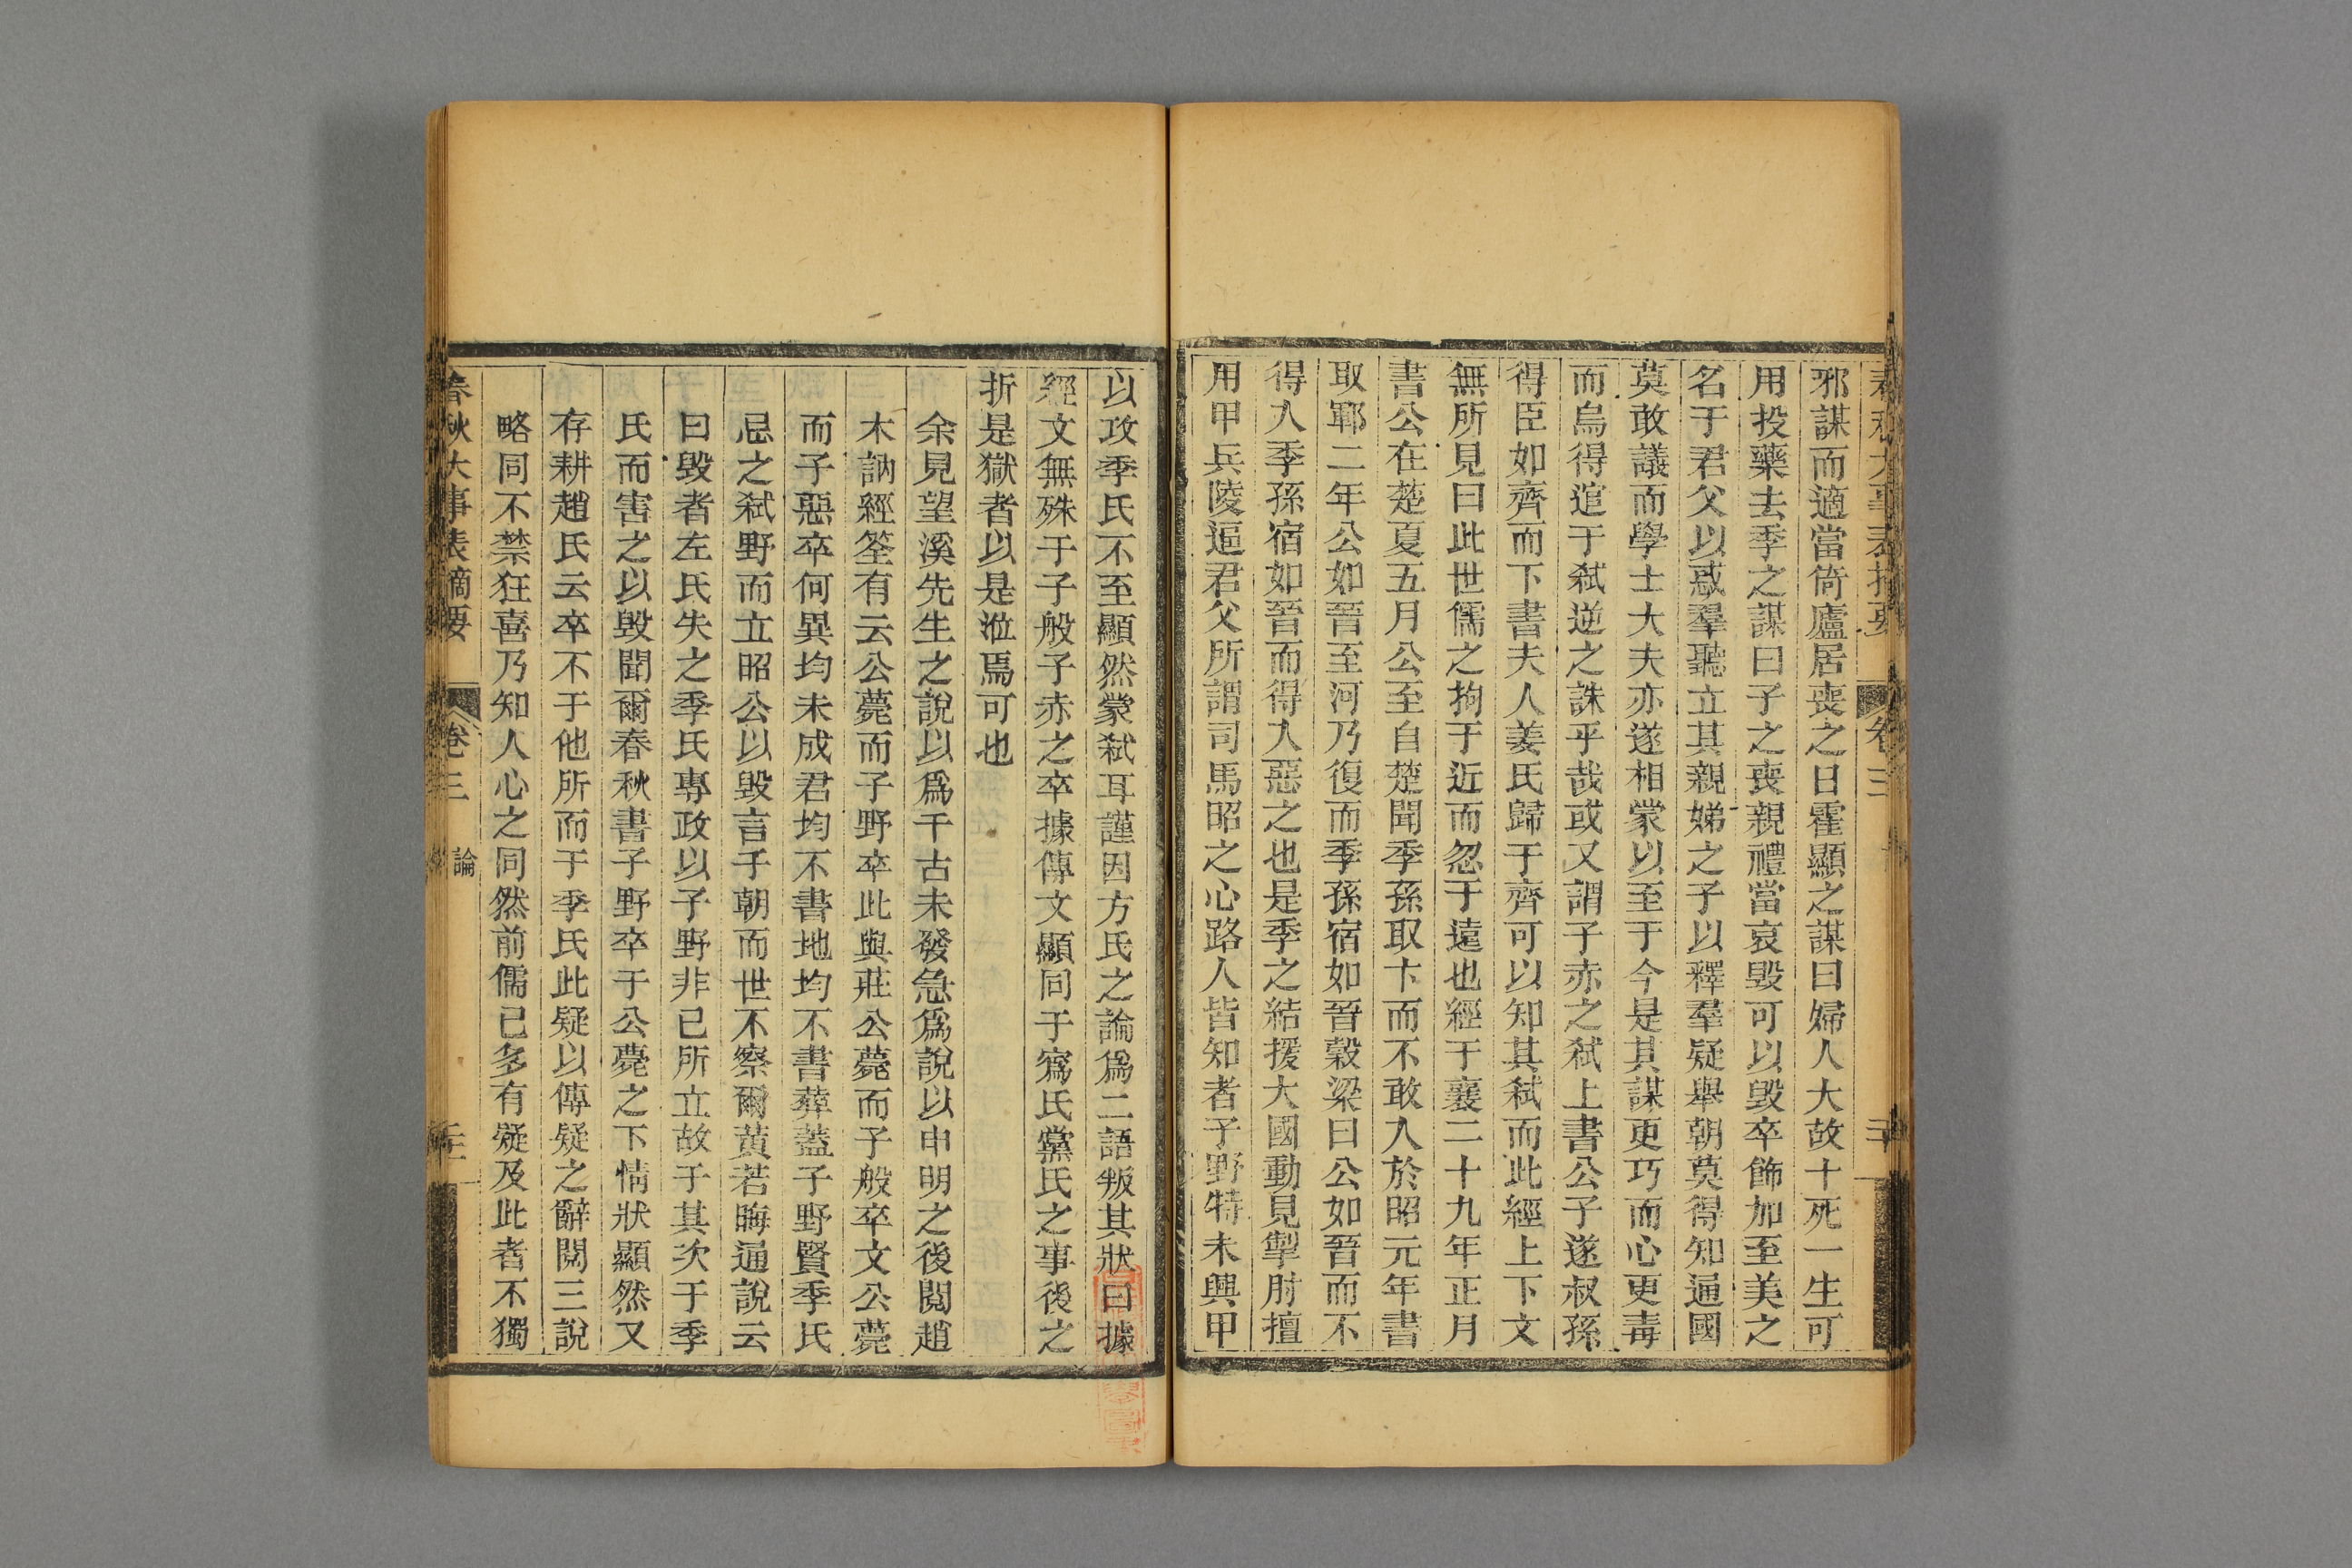 春秋大事表摘要 卷三 三十
邪謀而適當倚廬居喪之日霍顯之謀曰婦人大故十死一生可
用投藥去季之謀曰子之喪親禮當哀毀可以毀卒飾加至美之
名于君父以惑羣聽立其親娣之子以釋羣疑舉朝莫得知通國
莫敢議而學士大夫亦遂相蒙以至于今是其謀更巧而心更毒
而烏得逭于弑逆之誅乎哉或又謂子赤之弑上書公子遂叔孫
得臣如齊而下書夫人姜氏歸于齊可以知其弑而此經上下文
無所見曰此世儒之拘于近而忽于遠也經于襄二十九年正月
書公在楚夏五月公至自楚聞季孫取卞而不敢入於昭元年書
取鄆二年公如晉至河乃復而季孫宿如晉穀梁曰公如晉而不
得入季孫宿如晉而得入惡之也是季之結援大國動見掣肘擅
用甲兵陵逼君父所謂司馬昭之心路人皆知者子野特未興甲
以攻季氏不至顯然蒙弑耳謹因方氏之論爲二語叛其狀曰據
經文無殊于子般子赤之卒據傳文顯同于寪氏黨氏之事後之
折是獄者以是涖焉可也
余見望溪先生之說以爲千古未發急爲說以申明之後閱趙
木訥經筌有云公薨而子野卒此與莊公薨而子般卒文公薨
而子惡卒何異均未成君均不書地均不書葬葢子野賢季氏
忌之弑野而立昭公以毀言于朝而世不察爾黃若晦通說云
曰毀者左氏失之季氏專政以子野非己所立故于其次于季
氏而害之以毀聞爾春秋書子野卒于公薨之下情狀顯然又
存耕趙氏云卒不于他所而于季氏此疑以傳疑之辭閱三說
略同不禁狂喜乃知人心之同然前儒已多有疑及此者不獨
春秋大事表摘要 卷三 論 三十一